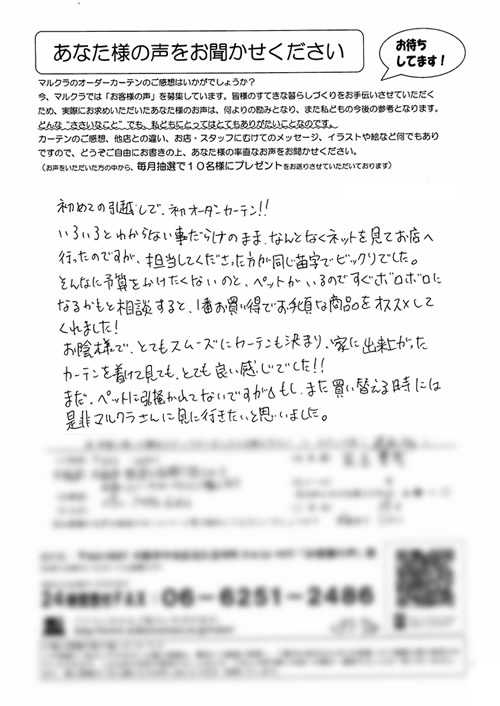 あなた様の声をお聞かせください
お待ち
してます！
マルクラのオーダーカーテンのご感想はいかがでしょうか？
今、マルクラでは「お客様の声」を募集しています。皆様のすてきな暮らしづくりをお手伝いさせていただく
ため、実際にお求めいただいたあなた様のお声は、何よりの励みとなり、また私どもの今後の参考となります。
どんな“ささいなこと”でも、私どもにとってはとてもありがたいことなのです。
カーテンのご感想、他店との違い、お店・スタッフにむけてのメッセージ、イラストや絵など何でもあり
ですので、どうぞご自由にお書きの上、あなた様の率直なお声をお聞かせください。
（お声をいただいた方の中から、毎月抽選で１０名様にプレゼントをお送りさせていただいております）
初めての引越しで、初オーダーカーテン!!
いろいろとわからない事だらけのまま、なんとなくネットを見てお店へ
行ったのですが、担当してくださった方が同じ苗字でビックリでした。
そんなに予算をかけたくないのと、ペットがいるのですぐボロボロに
なるかもと相談すると、1番お買い得でお手頃な商品をオススメして
くれました!
お陰様で、とてもスムーズにカーテンも決まり、家に出来上がった
カーテンを着けて見ても、とても良い感じでした!!
まだ、ペットに引掻かれてないですが、もし、また買い替える時には
是非マルクラさんに見に行きたいと思いました。
24時間受付FAX：06-6251-2486